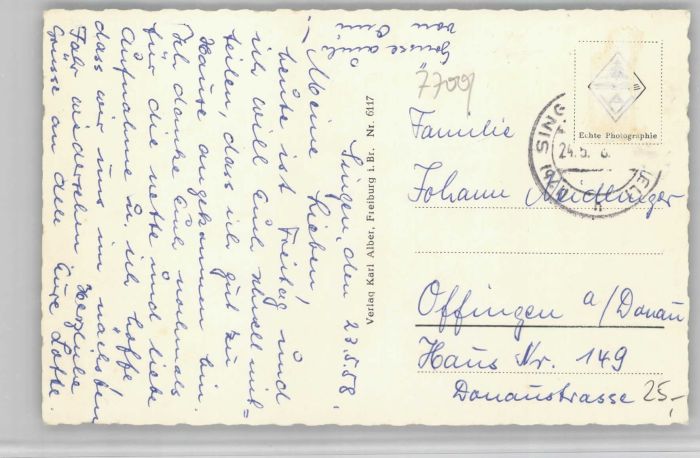 Singen, den 23.5.58.
Meine Lieben!
heute ist Freitag und
ich will Euch schnell mit=
teilen, dass ich gut zu
Hause angekommen bin
Ich danke Euch nochmals
für die nette und liebe
Aufnahme u. ich hoffe
dass wir uns im nächsten
Jahr wiedersehen Herzliche
Grüsse an alle Eure Lotte.
Grüsse auch
von
Verlag Karl Alber, Freiburg i. Br. Nr. 6117
7700
Echte Photographie
SING
24.5.
Familie
Johann
Offingen a/Donau
Haus Nr. 149
Donaustrasse
25,-